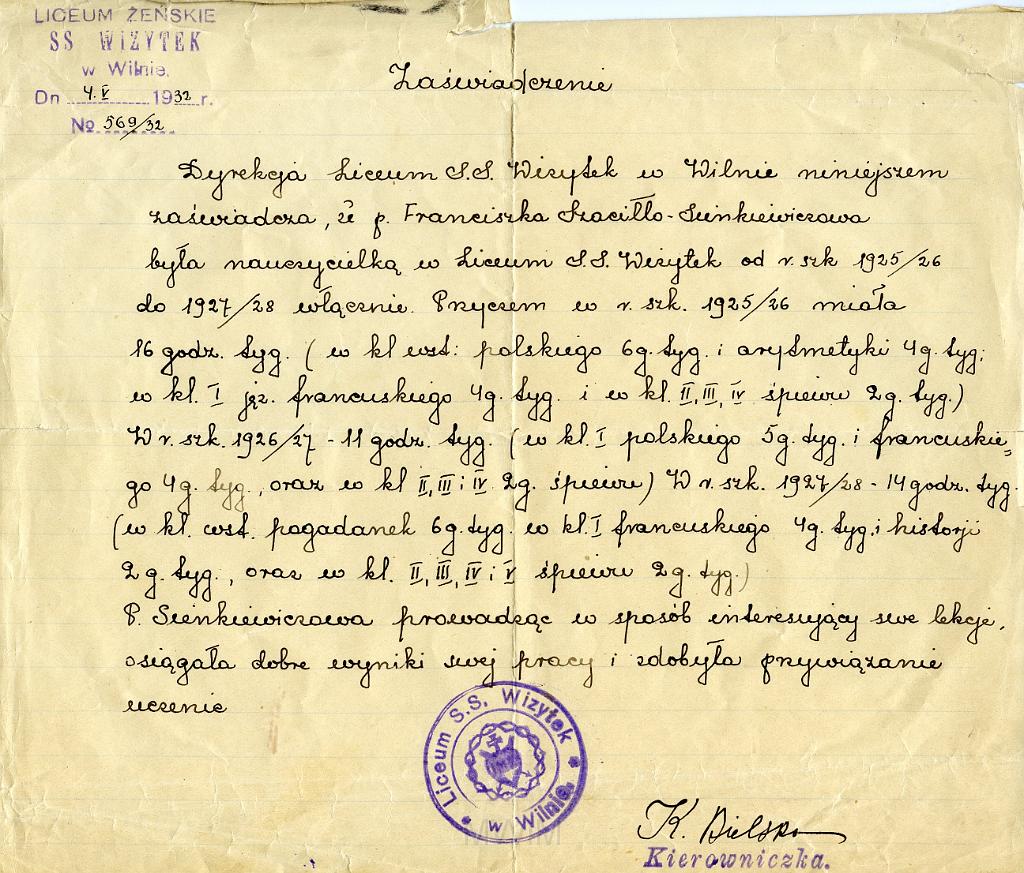 LICEUM ŻEŃSKIE
SS WIZYTEK
w Wilnie.
Dn 4.V 1932 r.
No 569/32
Zaświadczenie
Dyrekcja Liceum S.S. Wizytek w Wilnie niniejszem
zaświadcza, że p. Franciszka Szaciłło-Sienkiewiczowa
była nauczycielką w Liceum S.S. Wizytek od r. szk 1925/26
do 1927/28 włącznie. Przyczem w r. szk. 1925/26 miała
16 godz. tyg. (w kl wst: polskiego 6g. tyg. i arytmetyki 4g. tyg;
w kl. I jęz. francuskiego 4g. tyg. i w kl. II, III, IV śpiewu 2g. tyg.)
W r. szk. 1926/27 - 11 godz. tyg. (w kl. I polskiego 5g. tyg. i francuskie=
go 4g. tyg., oraz w kl II, III i IV 2g. śpiewu) W r. szk. 1927/28 - 14 godz. tyg.
(w kl. wst. pogadanek 6g. tyg. w kl. I francuskiego 4g. tyg. i historji
2g. tyg., oraz w kl. II, III, IV i V śpiewu 2g. tyg.)
P. Sienkiewiczowa prowadząc w sposób interesujący swe lekcje,
osiągała dobre wyniki swej pracy i zdobyła przywiązanie
uczenic
Liceum S.S. Wizytek * w Wilnie. *
K. Bielska
Kierowniczka.